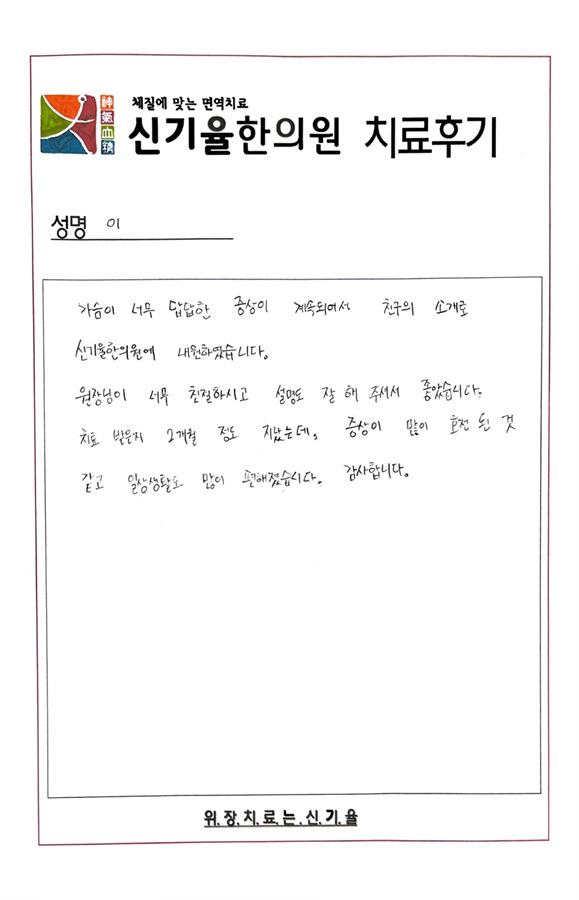 神
氣
血
精
체질에 맞는 면역치료
신기율한의원 치료후기
성명 이
가슴이 너무 답답한 증상이 계속되어서 친구의 소개로
신기율한의원에 내원하였습니다.
원장님이 너무 친절하시고 설명도 잘 해 주셔서 좋았습니다.
치료 받은지 2개월 정도 지났는데, 증상이 많이 호전 된 것
같고 일상생활도 많이 편해졌습니다. 감사합니다.
위.장.치.료.는.신.기.율